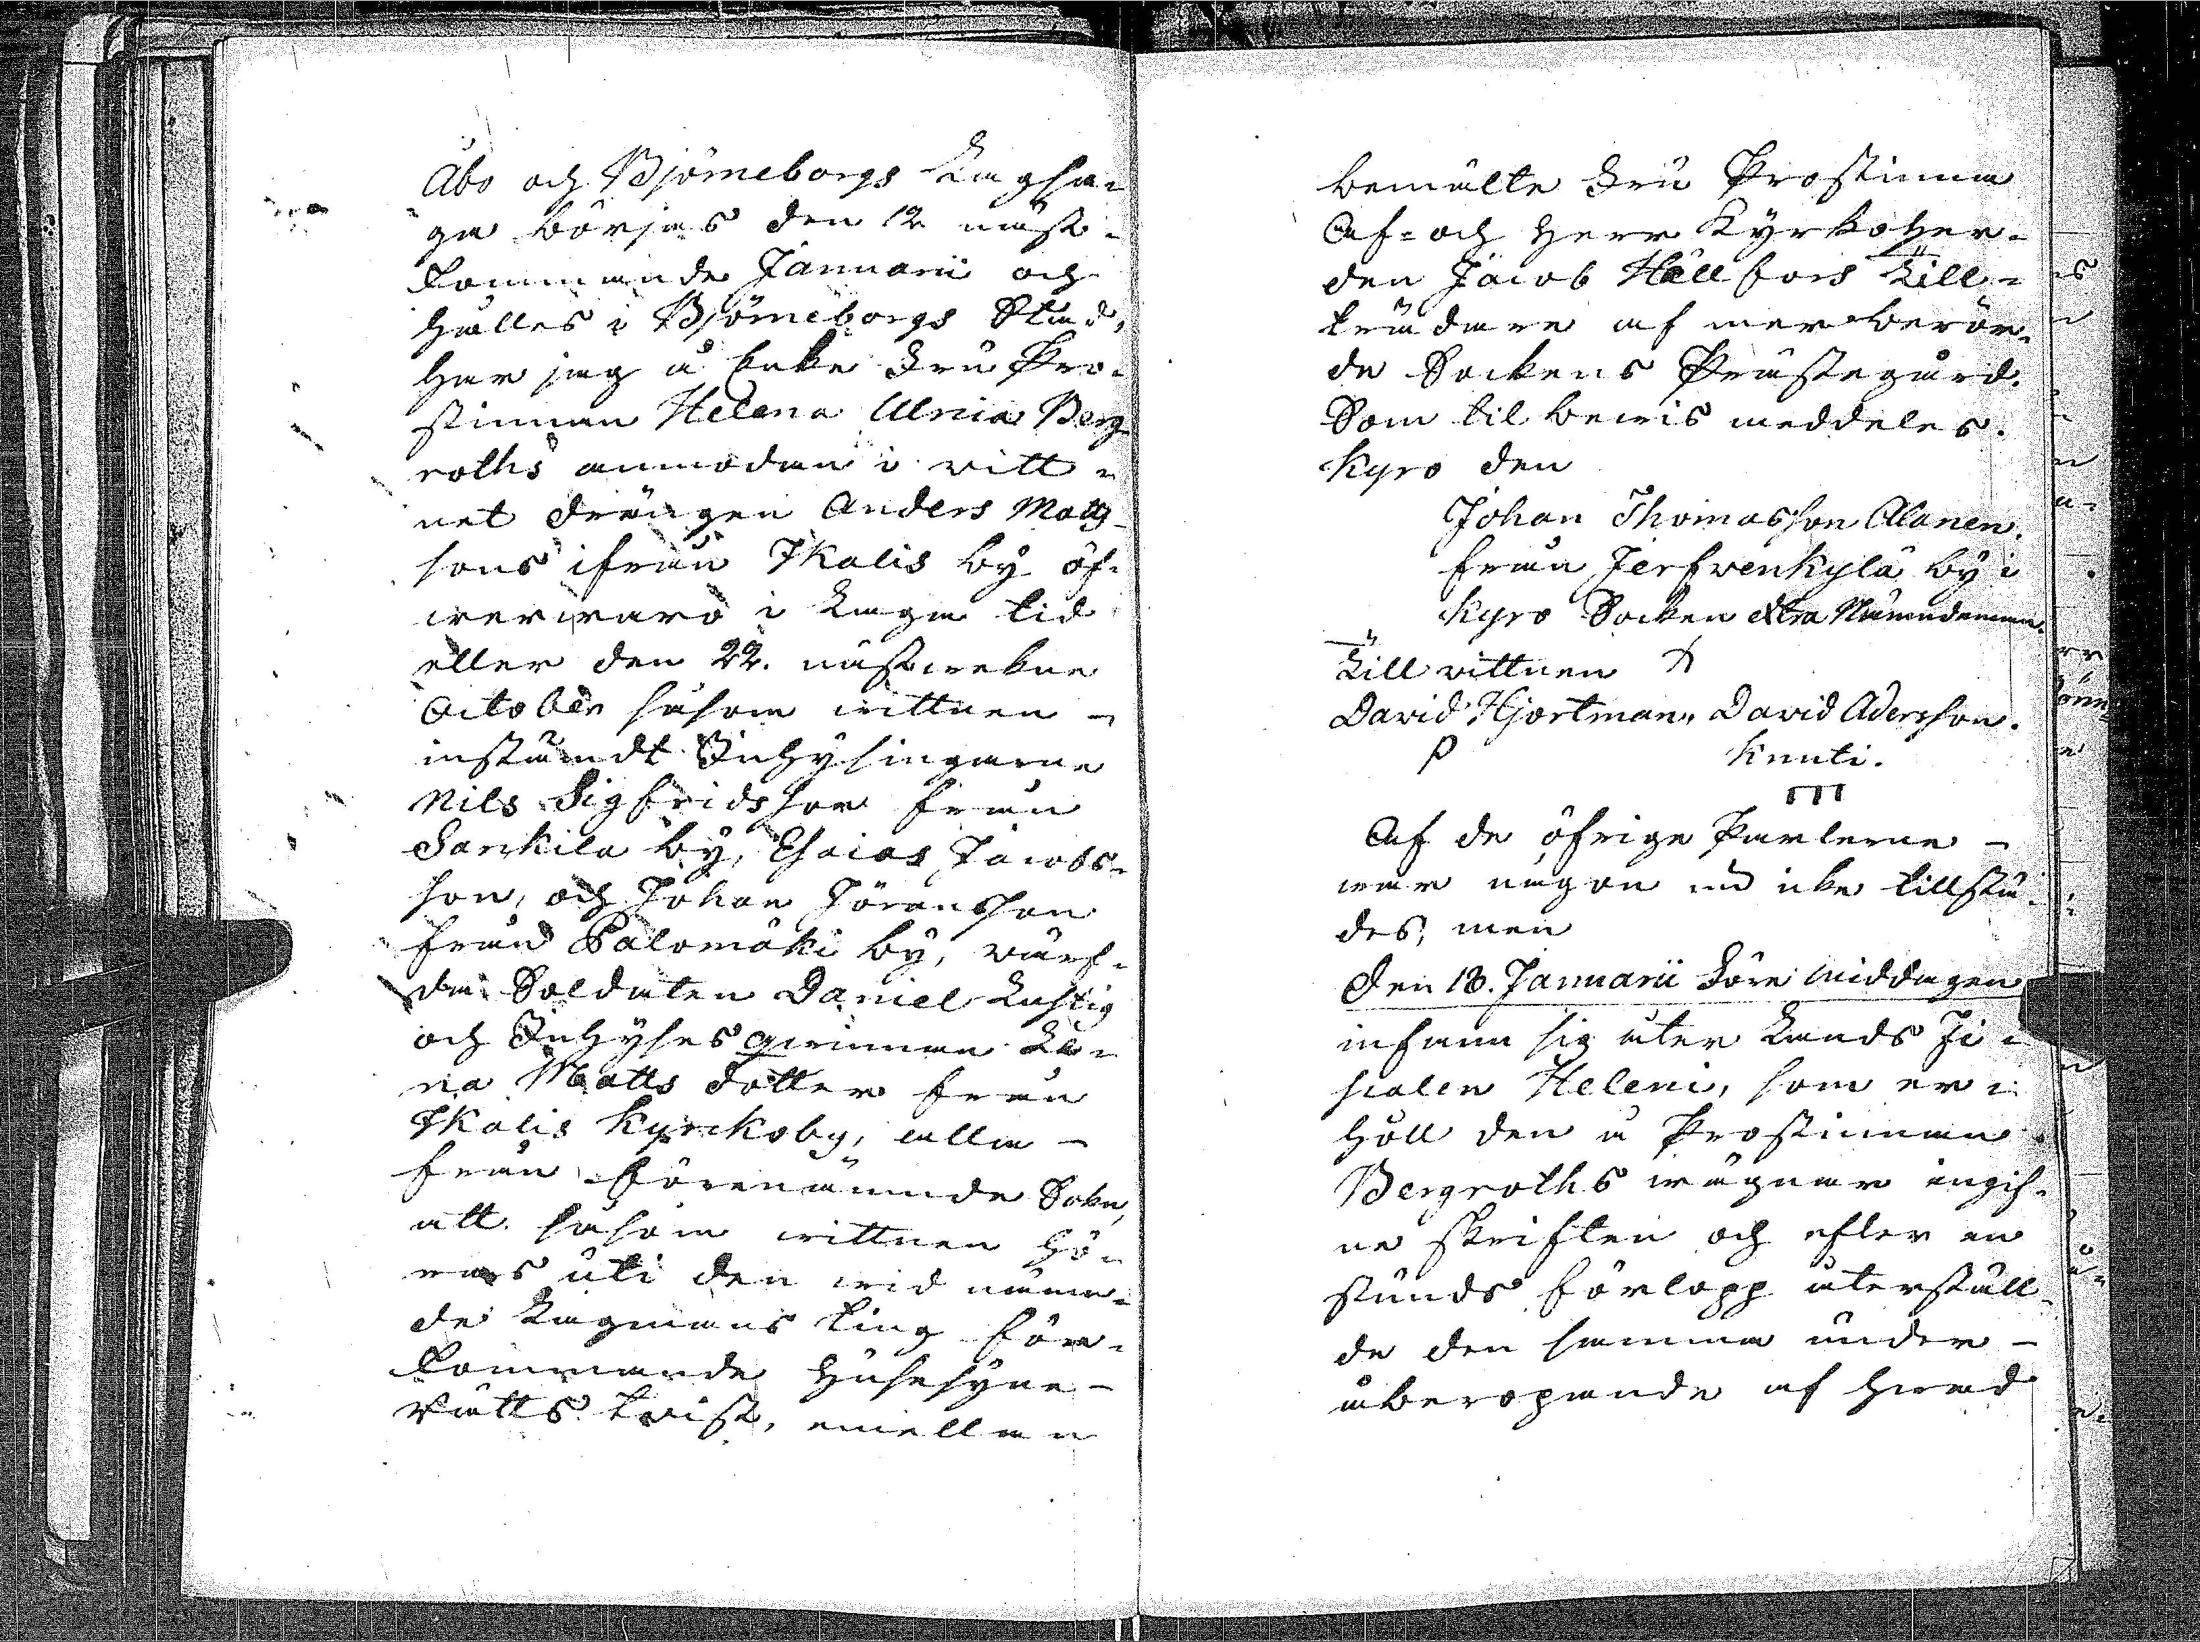 Åbo och Björneborgs Lagsa¬
ga börjas den 12 näst¬
kommande Januarii och
hålles i Björneborgs Stad,
har jag å Enke Fru Pro¬
stinnan Helena Ulrica Berg
roths anmodan i vitt¬
net drängen Anders Matts
sons ifrån Ikalis by öf¬
wervaro i laga tid
eller den 22. nästwekne
October såsom wittnen
instämdt Inhysingarne
Nils Sigfridsson från
Sarkila by, Esaias Jacobs¬
son, och Johan Jöransson
från Palomäki by, värf¬
da Soldaten Daniel Lustig
och Inhyses qwinnan Ca¬
rin Matts Dotter från
Ikalis Kyrckoby, alla
från förenämnde Sokn,
att såsom wittnen hö¬
ras uti den wid nämn¬
de Lagmans ting före¬
kommande Husesyne¬
rätts twist, emellan
bemälte Fru Prostinna
Af- och Herr Kyrkoher¬
den Jacob Hällfors Till¬
trädare af merberör¬
de Sockens Prästegård.
Som til bewis meddeles.
Kyro den
Johan Thomasson Alanen.
från Jerfwenkylä by i
Kyro Socken extra Nämndeman.
Till vittnen
David Hjortman, David Adersson.
Knuti.
Af de öfrige Parterne
war någon nu icke tillstä¬
des, men
Den 18. Januarii Före Middagen
infann sig åter Lands Fi¬
scalen Heleni, som er¬
höll den å Prostinnan
Bergroths wägnar ingif¬
ne skriften och efter en
stunds förlopp återställ¬
de den samma under
åberopande af hwad